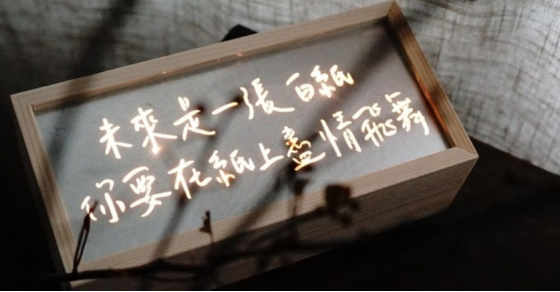 未來是一張白紙
你要在紙上盡情飛舞